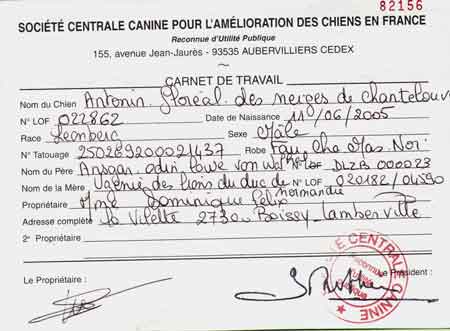 82156
SOCIÉTÉ CENTRALE CANINE POUR L'AMÉLIORATION DES CHIENS EN FRANCE
Reconnue d'Utilité Publique
155, avenue Jean-Jaurès - 93535 AUBERVILLIERS CEDEX
CARNET DE TRAVAIL
Nom du Chien Antonin. floréal. des neiges de chantelouv
N° LOF 022862 Date de Naissance 11/06/2005
Race Leonberg Sexe Mâle
N° Tatouage 250269200021437 Robe Fau, Cha Mas. Noi.
Nom du Père Ansgar. odin, löwe von N° LOF DLZB 000023
Nom de la Mère Ugenie des lions du duc de Normandie N° LOF 020182/04590
Propriétaire Mme Dominique Felix
Adresse complète La Vilette 27300 Boissy-Lamberville
2e Propriétaire
Le Propriétaire : Le Président :
SOCIÉTÉ CENTRALE CANINE
Reconnue d'Utilité Publique